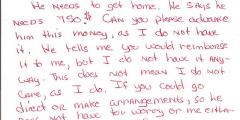 He Needs to get home. He says he
Needs 750$ Can you please advance
him this money, as I do not have
it. He tells me you would reimburse
it to me, but I do not have it any-
way. This does not mean I do not
care, as I do. If you could go
direct or make arrangements, so he
does not have to worry or me either